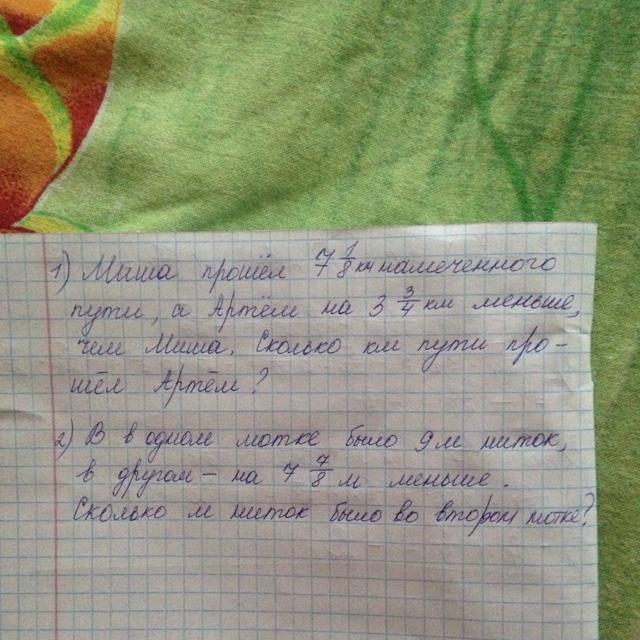 1) Миша прошёл 7 1/8 км намеченного
пути, а Артём на 3 3/4 км меньше,
чем Миша. Сколько км пути про-
шёл Артём?
2) В в одном мотке было 9 м ниток,
в другом – на 7 7/8 м меньше.
Сколько м ниток было во втором мотке?